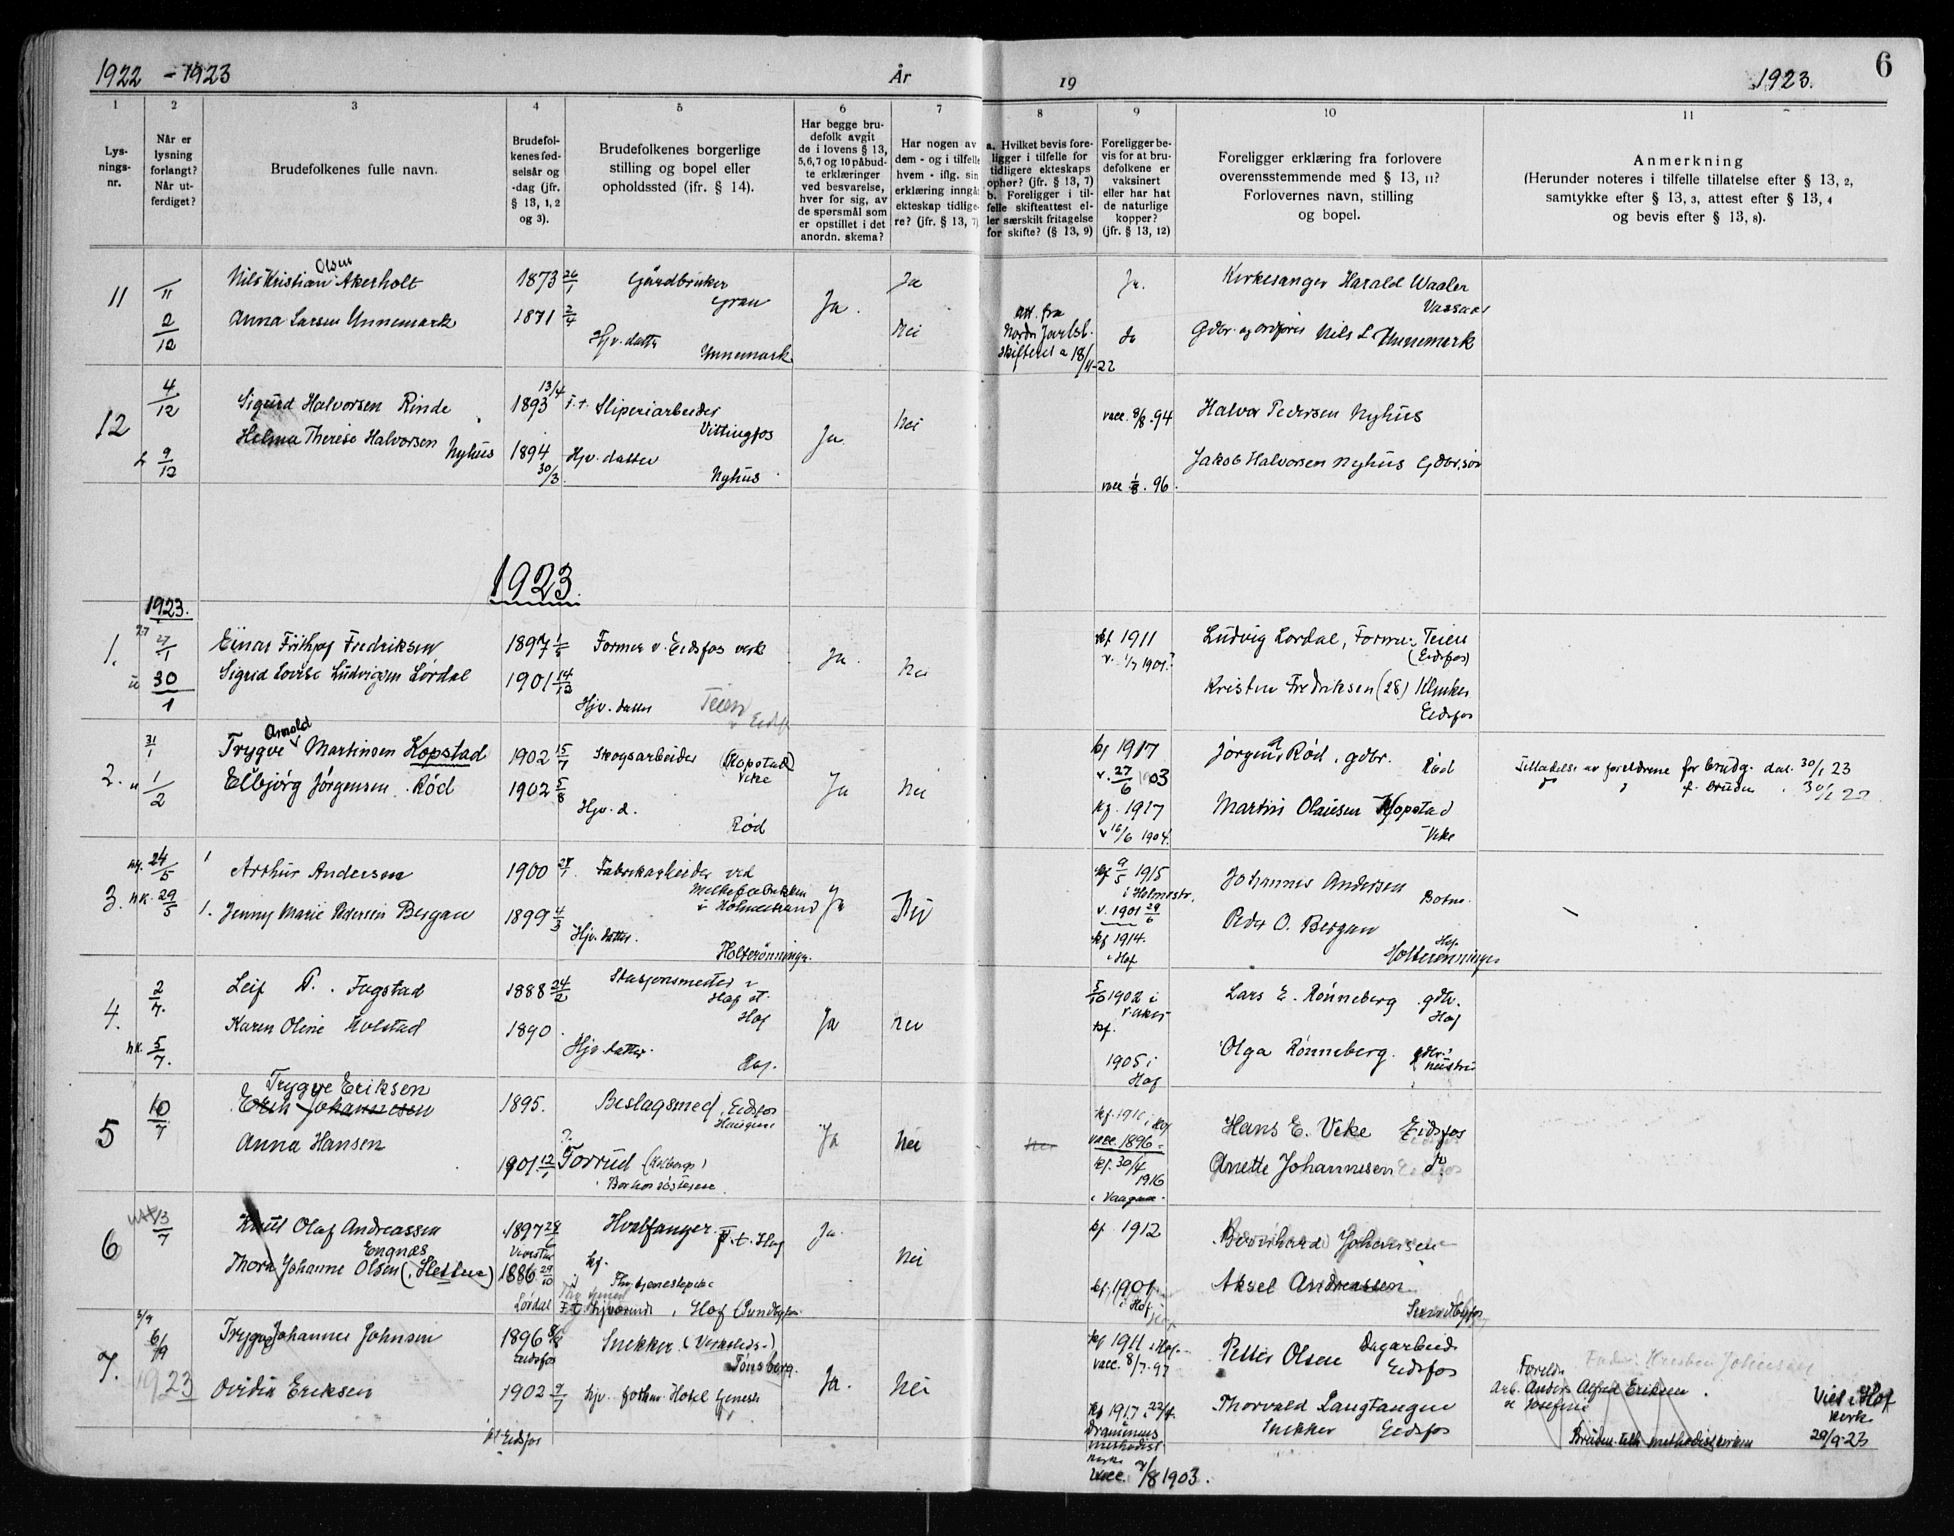 1922 - 1923
År
19
1923.
6
1
2
3
4
5
6
7
8
9
10
11
Lys-
nings-
nr.
Når er
lysning
forlangt?
Når ut-
ferdiget?
Brudefolkenes fulle navn.
Brudefol-
kenes fød-
selsår og
-dag (jfr.
§ 13, 1, 2
og 3).
Brudefolkenes borgerlige
stilling og bopel eller
opholdssted (ifr. § 14).
Har begge bru-
defolk avgit
de i lovens § 13,
5,6,7 og 10 påbud-
te erklæringer
ved besvarelse,
hver for sig, av
de spørsmål som
er opstillet i det
anordn. skema?
Har nogen av
dem - og i tilfelle
hvem - iflg. sin
erklæring inngåt
ekteskap tidlige-
re? (jfr. § 13, 7)
a. Hvilket bevis fore-
ligger i tilfelle for
tidligere ekteskaps
ophør? (jfr. § 13, 7)
b. Foreligger i til-
felle skifteattest el-
ler særskilt fritagelse
for skifte? (§ 13, 9)
Foreligger be-
vis for at bru-
defolkene er
vaksinert
eller har hat
de naturlige
kopper?
(jfr. § 13, 12)
Foreligger erklæring fra forlovere
overensstemmende med § 13, 11?
Forlovernes navn, stilling
og bopel.
Anmerkning
(Herunder noteres i tilfelle tillatelse efter § 13, 2,
samtykke efter § 13, 3, attest efter § 13, 4
og bevis efter § 13, 8).
11
/11
2/12
Olsen
Nils Kristian Akerholt
Anna Larsen Unnemark
1873 26/1
1871 2/4
Gårdbruker
Grau
Hjv. datter
Unnemark
Ja.
Ja
Nei
att. fra
Nordr Jarlsb.
skifteret a 18/11-22
Ja.
Ja
Kirkesanger Harald Waaler
Vassaas
Gdbr. og ordfører Nils L. Unnemark
12
4/12
9/12
Sigurd Halvorsen Rinde
Helma Therese Halvorsen Nyhus
13/4
1893
1894
30/3
F.t. Sliperiarbeider
Vittingfos
Hjv. datter
Nyhus
Ja
Nei
vacc. 8/8 .94
vacc 1/8 . 96.
Halvor Pedersen Nyhus
Jakob Halvorsen Nyhus Gdbr.søn
1923.
1923.
1.
27/1
30/1
Einar Frithjof Fredriksen
Sigrid Lovise Ludvigsen Lørdal
1897
1901 14/12
Former v. Eidsfos verk
Hjv. datter Teien
Eidsf
Ja
Nei
kf 1911
v. 1/7 1901.
Ludvig Lørdal, Former Teien
(Eidsfos)
Kristen Fredriksen (28) Klinken
Eidsfos
2.
31/1
1/2
Arnold
Trygve Martinsen Kopstad
Elbjörg Jörgensen Rød
1902 15/7
1902 5/8
Skogsarbeider (Kopstad)
Veke
Hjv. d.
Rød
Ja
Nei
kf 1917
v. 27/6 1903
kf. 1917
v 16/6 1904.
Jørgen Rød, gdbr. Rød
Martin Olausen Kopstad
Veke
Tilladelse av foreldrene for brudg. dat. 30/1 23
f. bruden 30/1 23
3.
24/5
29/5
Arthur Andersen
Jenny Marie Pedersen Bergan
1900
1899 4/3
Fabrikarbeider ved
Melkefabrikken
i Holmestrand
Hjv. datter.
Holterønningen
Ja
Nei
kf 9/5 1915
i Holmestr.
v. 1901 29/6
kf 1914.
i Hof
Johannes Andersen
Botne
Peder O. Bergan
Hof
Holterønningen
4.
2/7.
5/7.
Leif P. Fogstad
Karen Oline Holstad
1888 24/2
1890.
Stasjonsmester v
Hof st.
Hof
Hjv. datter.
Hof.
Ja
nei
5/10 1902 i
V. Aker
kf.
1905 i
Hof
Lars E. Rønneberg gdbr.
Hof
Olga Rønneberg.
5
10/7
Trygve Eriksen
Erik Johannesen
Anna Hansen
1895.
1901. 12/1
Beslagsmed. Eidsfos
Haugene
Torrud
Ja
Nei
nei
vacc. 1896
kf. 30/4
1916
Hans E. Veke Eidsfos
Anette Johannesen do
6
13/7
Knut Olaf Andreassen
Engnæs
Thora Johanne Olsen (Sletten)
1897
1886 29/10
Lørdal
Hvalfanger F.t. Hof
Hof Sundbyfos
Ja.
Nei
kf 1912
kf. 1901
i Hof
Bernhard Johansen
Aksel Andreassen
Sundbyfos
7.
5/9
6/9
1923
Trygve Johannes Johnsen
Ovidia Eriksen
1896 8/8
Eidsfos
1902 9/7
Eidsfos
Snekker
Tønsberg.
Hjv. forhen Hotel tjeneste
Ja.
Nei
kf 1911 i Hof.
vacc. 8/7. 97
kf 1917. 22/4.
Drammens
methodist
kirke og
vacc. /8 1903.
Petter Olsen Dagarbeid
Eidsfos
Thorvald Langtangen
Snekker Eidsfos
Foreldr
arb. Anders Alfred Eriksen
og Josefine
Bruden tilh methodistkirken
Viet i Hof
kirke
29/9-23